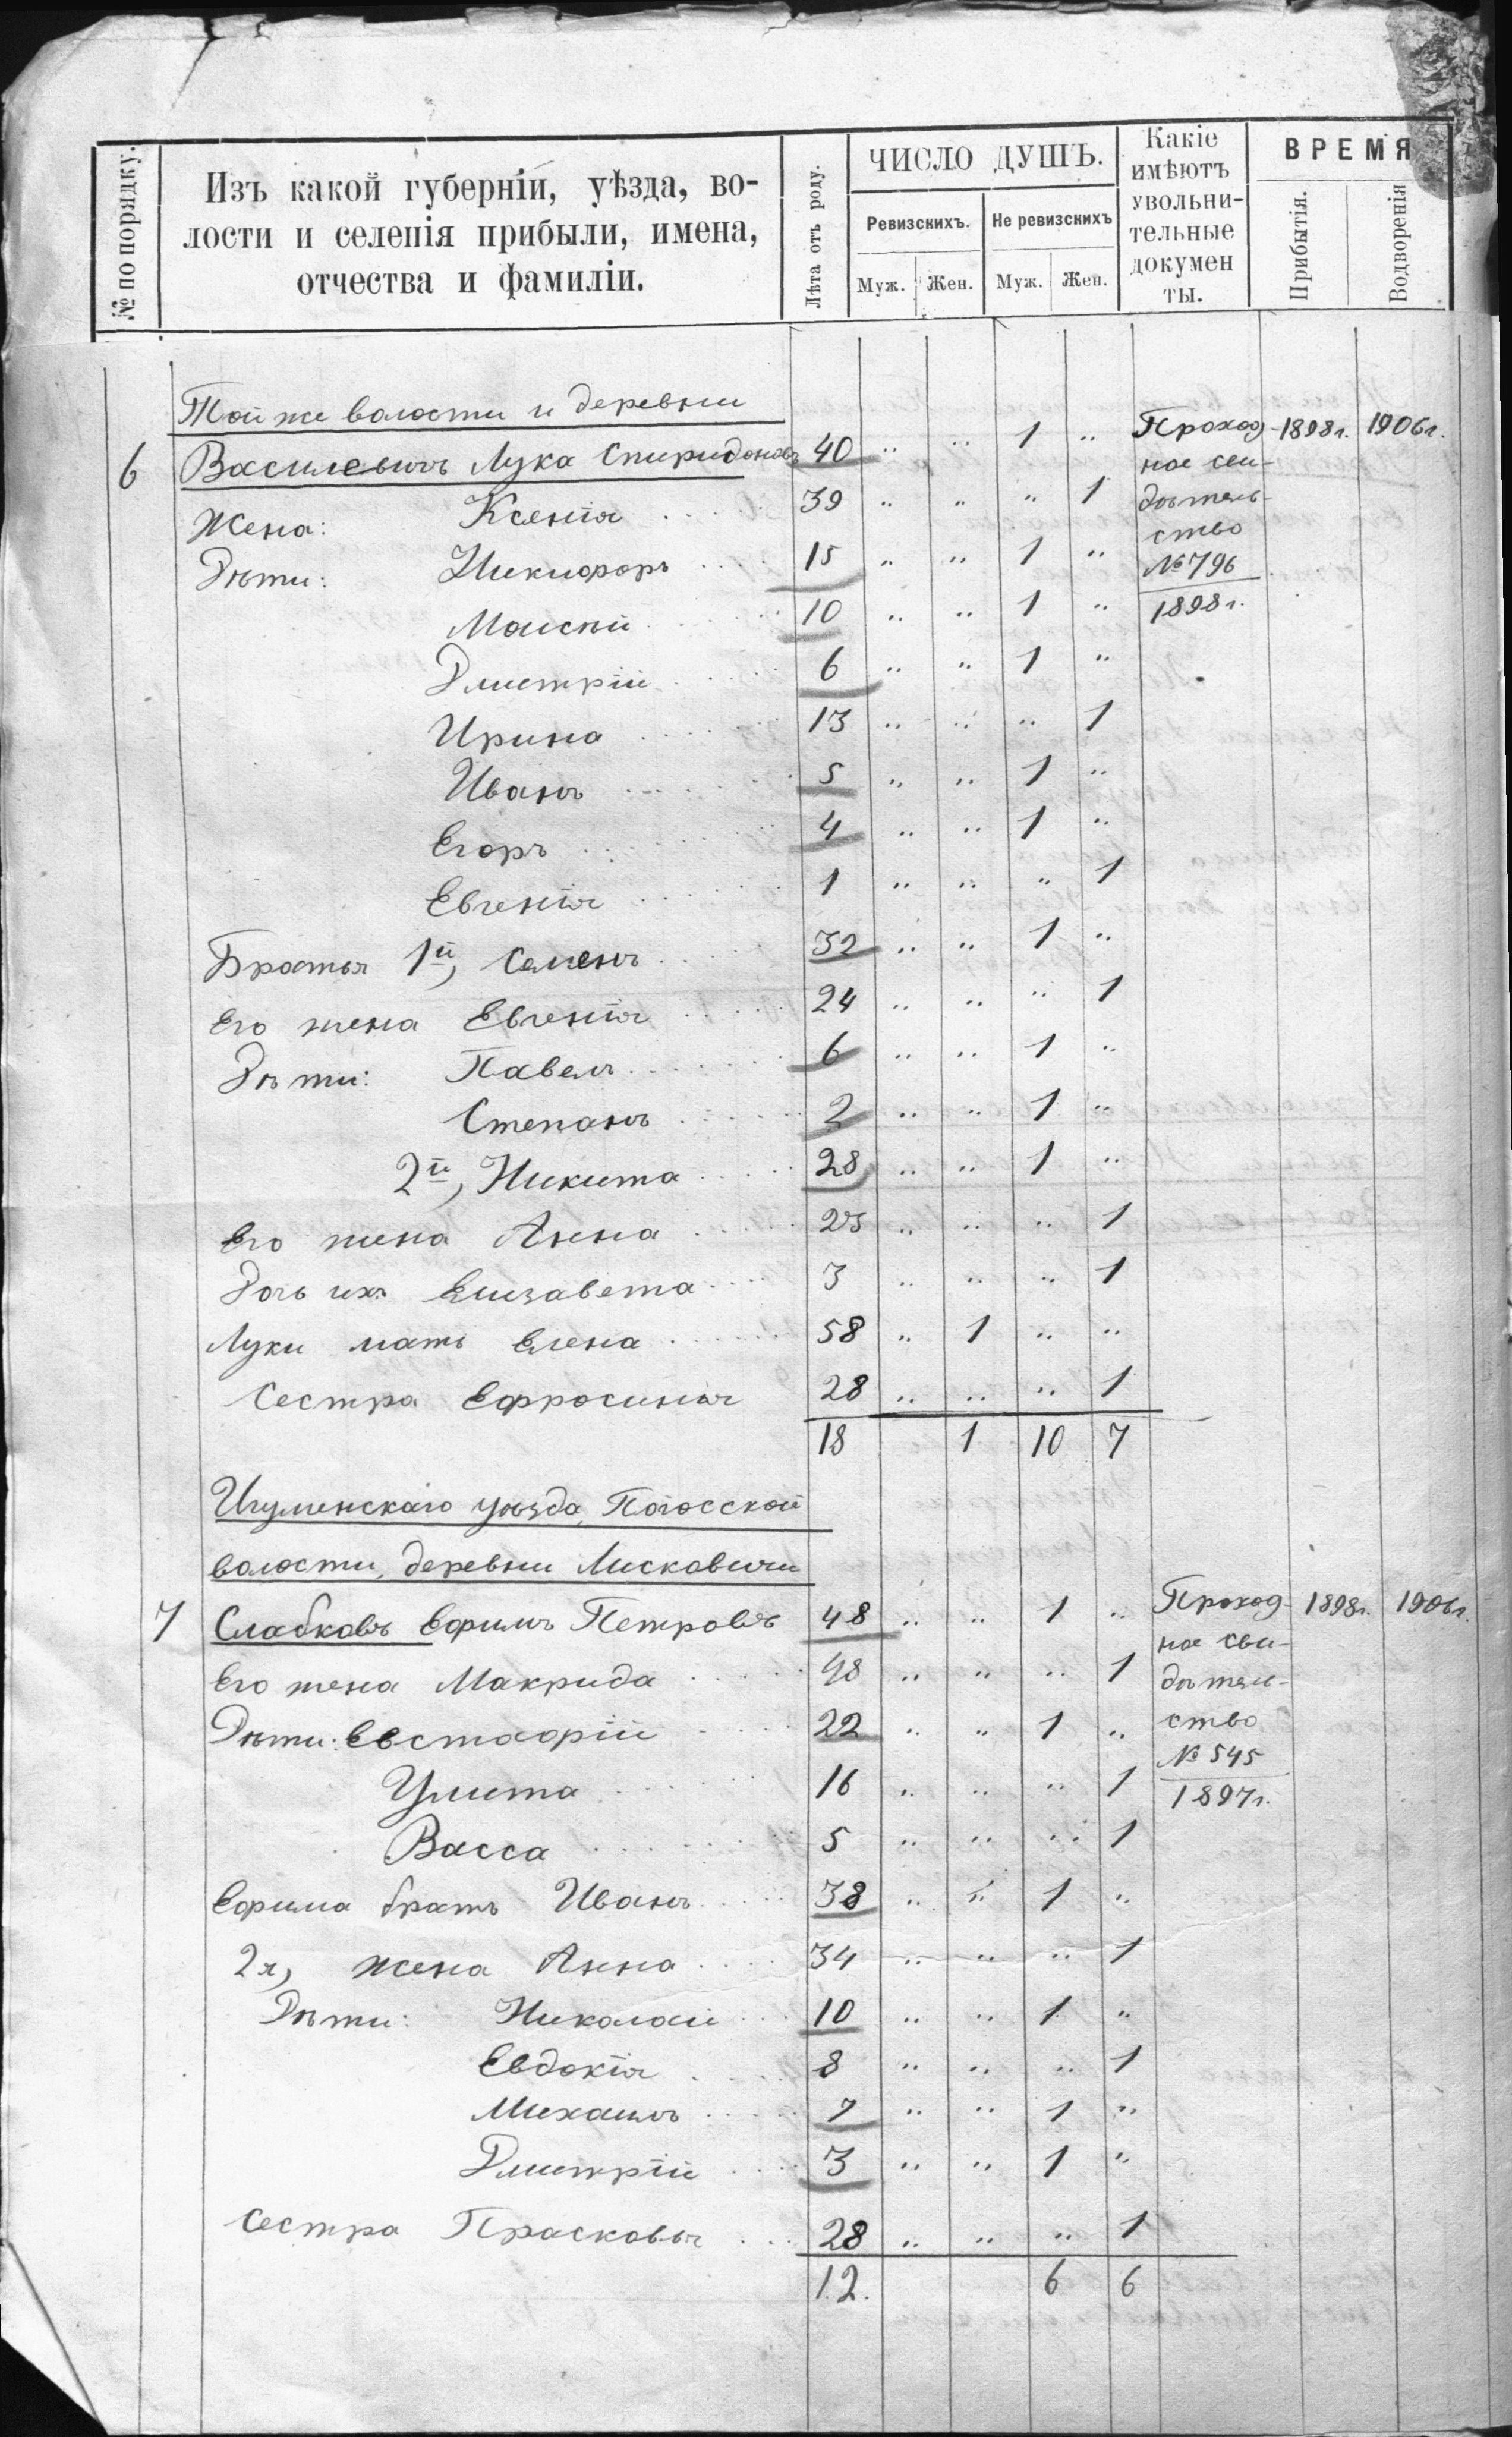 № по порядку.
Изъ какой губерніи, уѣзда, во-
лости и селенія прибыли, имена,
отчества и фамиліи.
Лѣта отъ роду.
ЧИСЛО ДУШЪ.
Ревизскихъ. Не ревизскихъ
Муж. Жен. Муж. Жен.
Какіе
имѣютъ
увольни-
тельные
докумен
ты.
ВРЕМЯ
Прибытія. Водворенія
Той же волости и деревни
6 Василевичъ Лука Спиридоновъ 40 " " 1 " Проход- 1898г. 1906г.
ное сви-
Жена: Ксенія 39 " " " 1 дѣтель-
ство
Дѣти: Никифоръ 15 " " 1 " № 796
Моисѣй 10 " " 1 " 1898г.
Дмитрій 6 " " 1 "
Ирина 13 " " " 1
Иванъ 5 " " 1 "
Егоръ 4 " " 1 "
Евгенія 1 " " " 1
Братья 1й, Семенъ 32 " " 1 "
Его жена Евгенія 24 " " " 1
Дѣти: Павелъ 6 " " 1 "
Степанъ 2 " " 1 "
2й, Никита 28 " " 1 "
Его жена Анна 25 " " " 1
Дочь ихъ Елизавета 3 " " " 1
Луки мать Елена 58 " 1 " "
Сестра Ефросинія 28 " " " 1
18 1 10 7
Игуменскаго уѣзда, Погосской
волости, деревни Лисковичи
7 Слабковъ Ефимъ Петровъ 48 " " 1 " Проход- 1898г. 1906г.
ное сви-
Его жена Макрида 48 " " " 1 дѣтель-
Дѣти: Евстафій 22 " " 1 " ство
№ 545
Улита 16 " " " 1 1897г.
Васса 5 " " " 1
Ефима братъ Иванъ 38 " " 1 "
2я, жена Анна 34 " " " 1
Дѣти: Николай 10 " " 1 "
Евдокія 8 " " " 1
Михаилъ 7 " " 1 "
Дмитрій 3 " " 1 "
Сестра Прасковья 28 " " " 1
12. 6 6